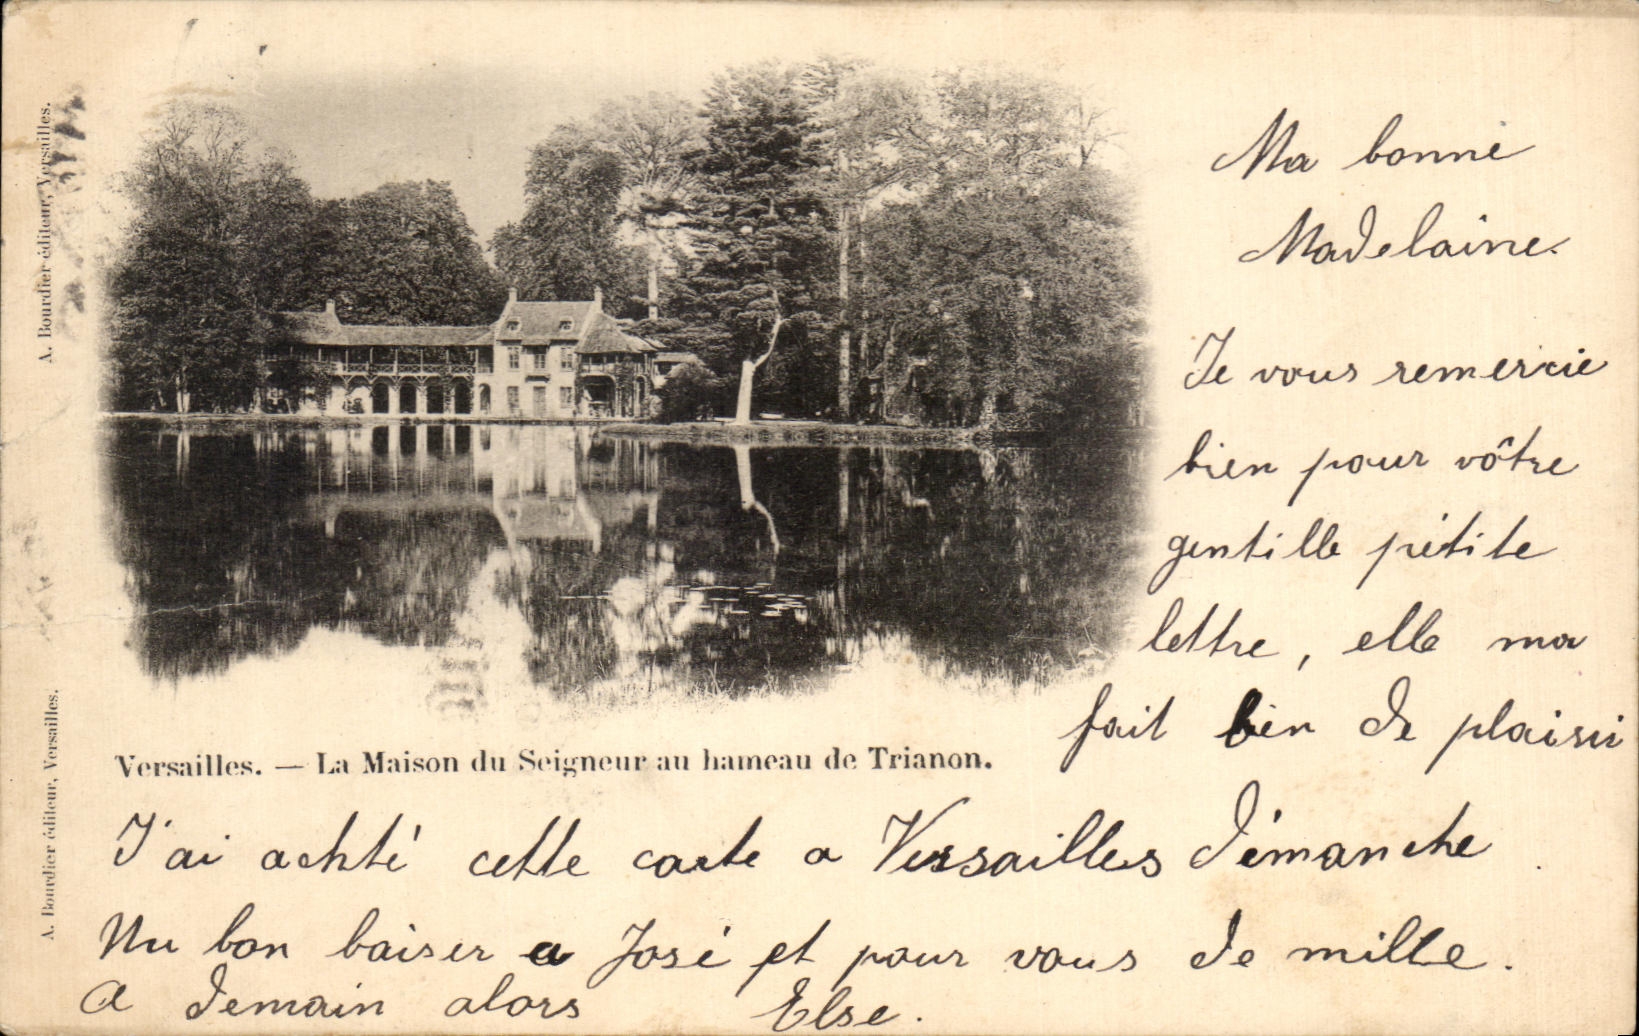 A. Bourdier éditeur, Versailles.
A. Bourdier éditeur, Versailles.
Ma bonne
Madelaine.
Je vous remercie
bien pour vôtre
gentille pétite
lettre, elle ma
fait bien de plaisir
Versailles. — La Maison du Seigneur au hameau de Trianon.
J'ai achté cette carte a Versailles démanche
Un bon baiser a José et pour vous de mille.
A demain alors Else.